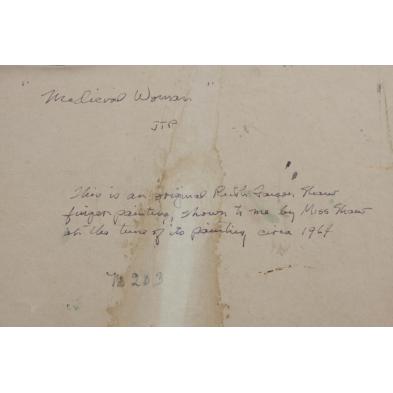 "Medieval Woman"
JTP
This is an original Ruth Faison Shaw
finger painting, shown to me by Miss Shaw
at the time of its painting circa 1964
203